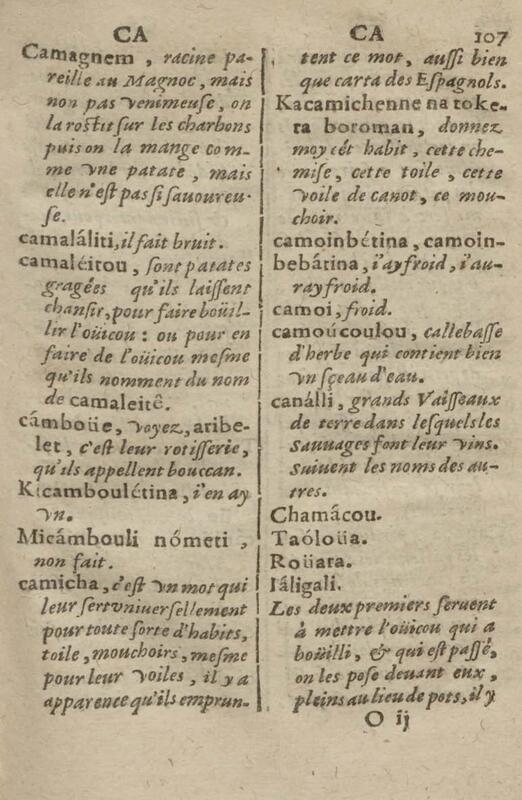 CA
Camagnem, racine pa-
reille au Magnoc, mais
non pas venimeuse, on
la roſtit ſur les charbons
puis on la mange com-
me vne patate, mais
elle n'eſt pas ſi ſauoureu-
ſe.
camaláliti, il fait bruit.
camaléitou, ſont patates
gragées qu'ils laiſſent
chanſir, pour faire boüil-
lir l'oüicou : ou pour en
faire de l'oüicou meſme
qu'ils nomment du nom
de camaleitê.
câmboüe, voyez, aribe-
let, c'eſt leur rotiſſerie,
qu'ils appellent bouccan.
Kicamboulétina, i'en ay
vn.
Micámbouli nómeti,
non fait.
camicha, c'eſt vn mot qui
leur ſert vniuerſellement
pour toute ſorte d'habits,
toile, mouchoirs, meſme
pour leur voiles, il y a
apparence qu'ils emprun-
CA 107
tent ce mot, auſſi bien
que carta des Eſpagnols.
Kacamichenne na toke-
ra boroman, donnez
moy cét habit, cette che-
miſe, cette toile, cette
voile de canot, ce mou-
choir.
camoinbétina, camoin-
bebâtina, i'ay froid, i'au-
ray froid.
camoi, froid.
camoúcoulou, callebaſſe
d'herbe qui contient bien
vn ſçeau d'eau.
canálli, grands Vaiſſeaux
de terre dans leſquels les
Sauuages font leur vins.
Suiuent les noms des au-
tres.
Chamâcou.
Taóloüa.
Roüara.
Iáligali.
Les deux premiers ſeruent
à mettre l'oüicou qui a
boüilli, & qui eſt paſſé,
on les poſe deuant eux,
pleins au lieu de pots, il y
O ij